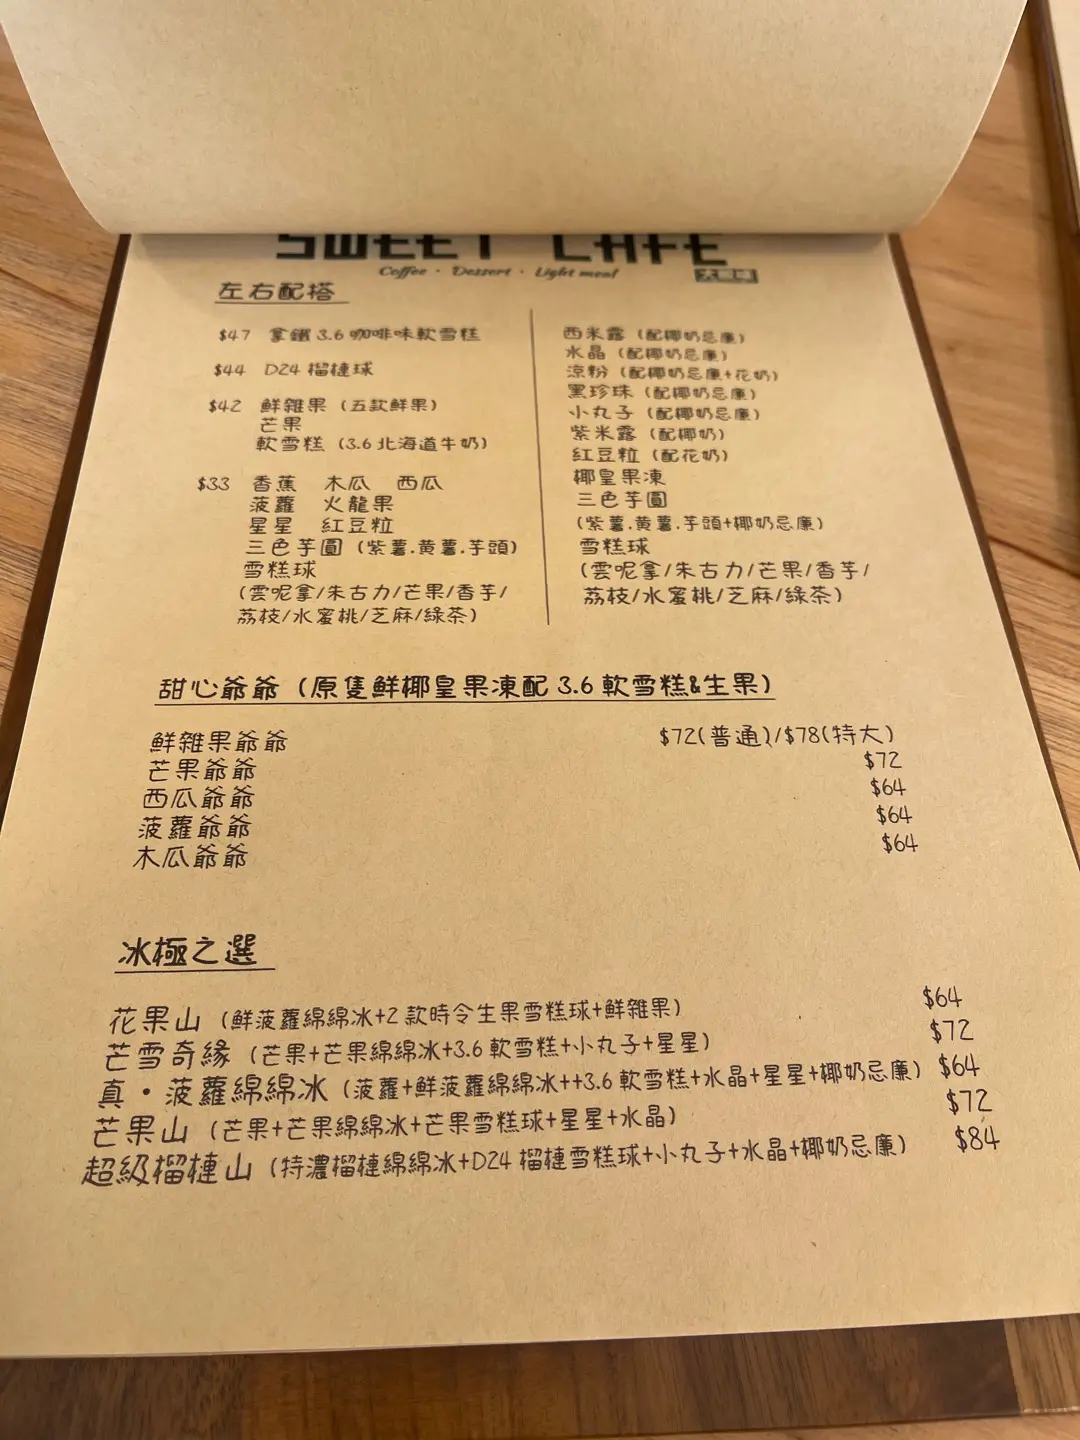 SWEET CAFE
Coffee · Dessert · Light meal
左右配搭
$47 拿鐵 3.6 咖啡味軟雪糕
$44 D24 榴槤球
$42 鮮雜果（五款鮮果）
芒果
軟雪糕（3.6 北海道牛奶）
$33 香蕉 木瓜 西瓜
菠蘿 火龍果
星星 紅豆粒
三色芋圓（紫薯.黄薯.芋頭）
雪糕球
（雲呢拿/朱古力/芒果/香芋/
荔枝/水蜜桃/芝麻/綠茶）
西米露（配椰奶忌廉）
水晶（配椰奶忌廉）
涼粉（配椰奶忌廉+花奶）
黑珍珠（配椰奶忌廉）
小丸子（配椰奶忌廉）
紫米露（配椰奶）
紅豆粒（配花奶）
椰皇果凍
三色芋圓
（紫薯.黄薯.芋頭+椰奶忌廉）
雪糕球
（雲呢拿/朱古力/芒果/香芋/
荔枝/水蜜桃/芝麻/綠茶）
甜心爺爺（原隻鮮椰皇果凍配 3.6 軟雪糕&生果）
鮮雜果爺爺 $72(普通)/$78(特大)
芒果爺爺 $72
西瓜爺爺 $64
菠蘿爺爺 $64
木瓜爺爺 $64
冰極之選
花果山（鮮菠蘿綿綿冰+2 款時令生果雪糕球+鮮雜果） $64
芒雪奇緣（芒果+芒果綿綿冰+3.6 軟雪糕+小丸子+星星） $72
真・菠蘿綿綿冰（菠蘿+鮮菠蘿綿綿冰++3.6 軟雪糕+水晶+星星+椰奶忌廉） $64
芒果山（芒果+芒果綿綿冰+芒果雪糕球+星星+水晶） $72
超級榴槤山（特濃榴槤綿綿冰+D24 榴槤雪糕球+小丸子+水晶+椰奶忌廉） $84